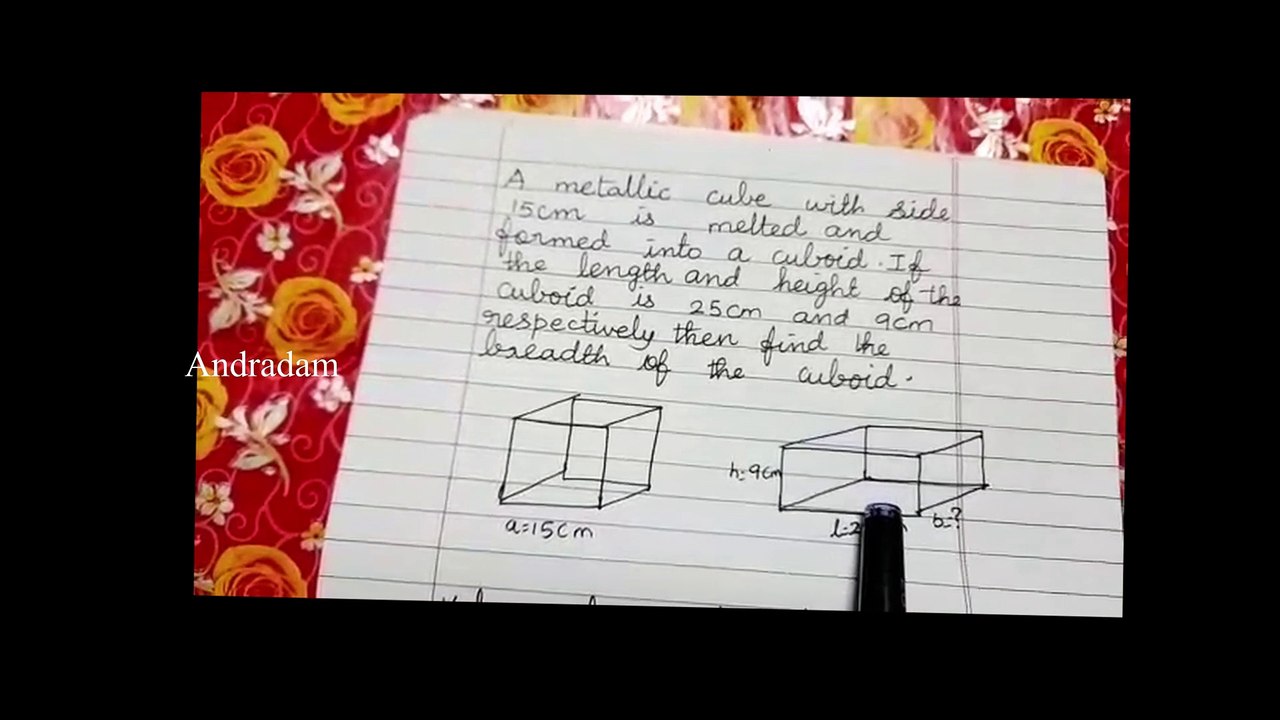 A metallic cube with side
15cm is melted and
formed into a cuboid. If
the length and height of the
cuboid is 25cm and 9cm
respectively then find the
breadth of the cuboid.
Andradam
h=9cm
a=15cm
b=?